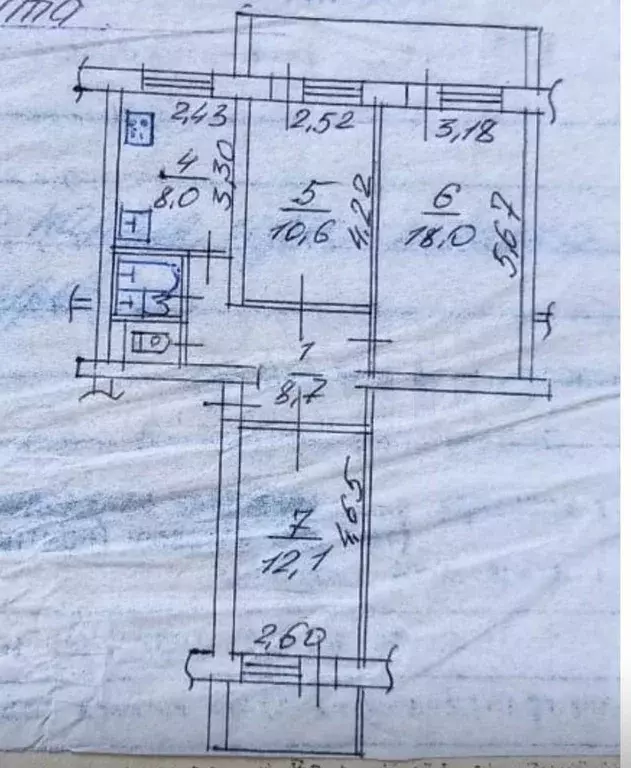 2,43
2,52
3,18
4
8,0
3,30
5
10,6
4,22
6
18,0
5,67
3
1
8,7
7
12,1
4,65
2,60